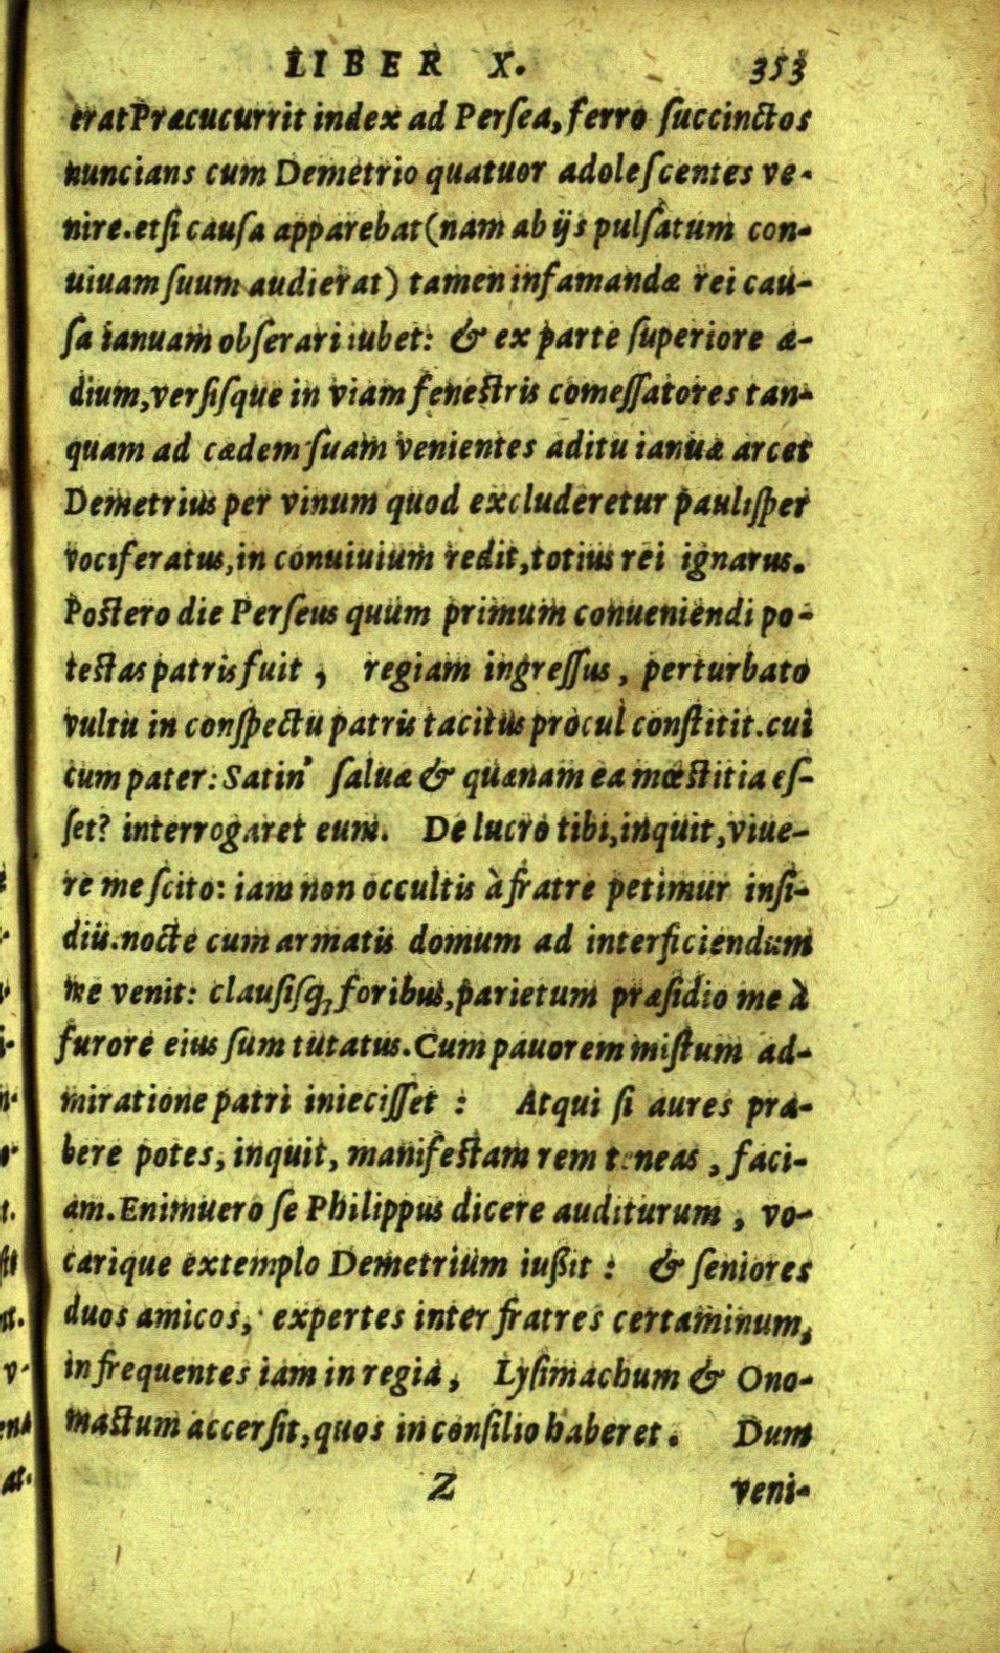 LIBER X. 353
erat Præcucurrit index ad Perſea, ferro ſuccinctos
nuncians cum Demetrio quatuor adoleſcentes ve-
nire. etſi cauſa apparebat (nam ab ijs pulſatum con-
uiuam ſuum audierat) tamen infamandæ rei cau-
ſa ianuam obſerari iubet: & ex parte ſuperiore æ-
dium, verſiſque in viam feneſtris comeſſatores tan-
quam ad cædem ſuam venientes aditu ianuæ arcet
Demetrius per vinum quod excluderetur pauliſper
vociferatus, in conuiuium redit, totius rei ignarus.
Poſtero die Perſeus quum primum conueniendi po-
teſtas patris fuit, regiam ingreſſus, perturbato
vultu in conſpectu patris tacitus procul conſtitit. cui
cum pater: Satin' ſaluæ & quænam ea mœſtitia eſ-
ſet? interrogaret eum. De lucro tibi, inquit, viue-
re me ſcito: iam non occultis à fratre petimur inſi-
diis. nocte cum armatis domum ad interficiendum
me venit: clauſiſq; foribus, parietum præſidio me à
furore eius ſum tutatus. Cum pauorem miſtum ad-
miratione patri inieciſſet: Atqui ſi aures præ-
bere potes, inquit, manifeſtam rem teneas, faci-
am. Enimuero ſe Philippus dicere auditurum, vo-
carique extemplo Demetrium iußit: & ſeniores
duos amicos, expertes inter fratres certaminum,
infrequentes iam in regia, Lyſimachum & Ono-
maſtum accerſit, quos in conſilio haberet. Dum
Z veni-